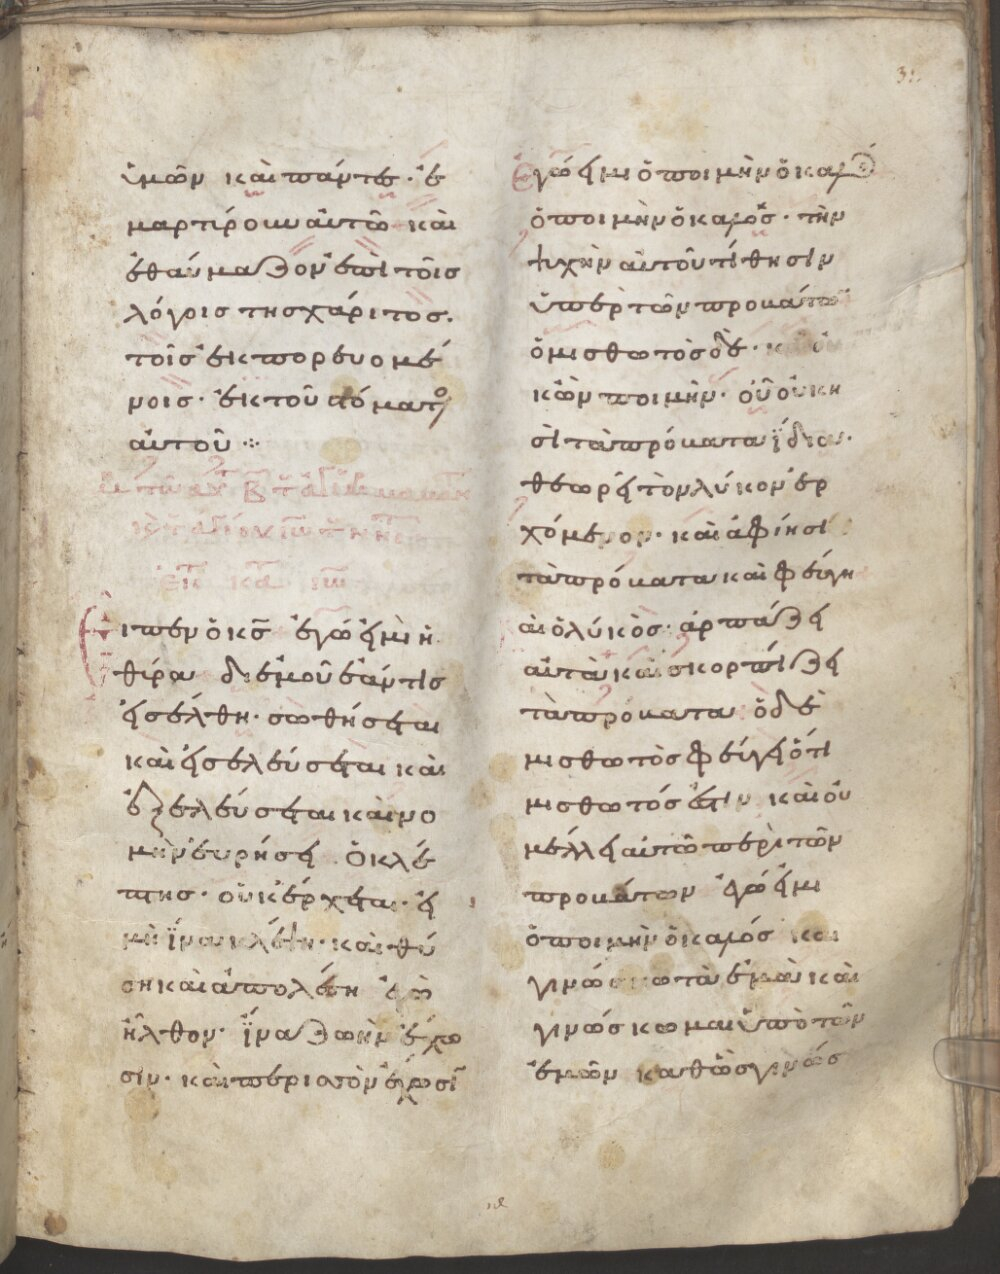 31
ὑμῶν καὶ πάντες· ἐ
μαρτίρουν ἀυτῶ καὶ
ἐθαύμαζον ἐπὶ τοῖς
λόγοις της χάριτος.
τοῖς ἐκπορευομέ
νοις· ἐκ τοῦ στόματος
ἀυτοῦ ⁘
Εἶπεν ὁ κ̅ς̅ ἐγώ εἰμι ἡ
θίρα δι ἐμοῦ ἐάν τις
εἰσέλθη· σωθήσεται
καὶ εἰσελεύσεται καὶ
ἐξελεύσεται καὶ νο
μὴν ἑυρήσει ὁ κλέ
πτης· οὐκ ἔρχεται· εἰ
μὴ ἵνα κλέψη· καὶ θύ
ση καὶ ἀπολέση ἐγὼ
ἦλθον· ἵνα ζωὴν ἔχω
σιν· καὶ περισσὸν ἔχωσϊ
Ἐγώ εἰμι ὁ ποιμὴν ὁ καλός
ὁ ποιμὴν ὁ καλός· τὴν
ψυχὴν ἀυτοῦ τίθησιν
ὑπὲρ τῶν προκάτω
ὁ μισθωτὸς δὲ· καὶ ὀυ
κ ὢν ποιμὴν· οὗ οὐκ η
σὶ τὰ πρόκατα ἴδια·
θεωρεῖ τὸν λύκον ἐρ
χόμενον· καὶ ἀφίησι
τὰ πρόκατα καὶ φεύγη
καὶ ὁ λύκὸς· ἁρπάζει
αὐτὰ καὶ σκορπίζει
τὰ πρόκατα ὁ δὲ
μισθωτὸς φεύγει ὅτι
μισθωτός ἐστιν καὶ οὐ
μέλλει αὐτῶ περὶ τῶν
προκάτων ἐγώ εἰμι
ὁ ποιμὴν ὁ καλός και
γινώσκω τὰ ἐμὰ καὶ
γινώσκωμαι ὑπὸ τῶν
ἐμῶν καθὼς γινώς